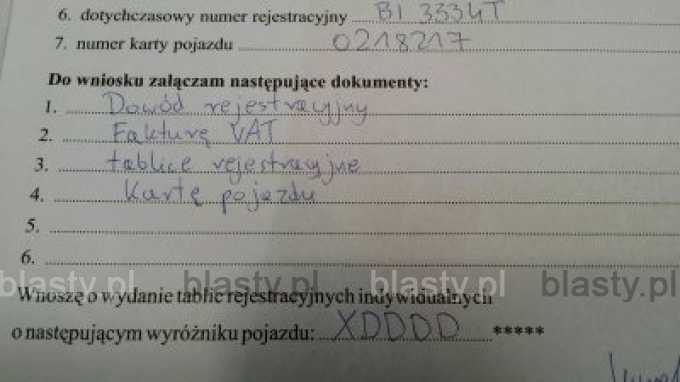 6. dotychczasowy numer rejestracyjny BI 3334T
7. numer karty pojazdu 0218217
Do wniosku załączam następujące dokumenty:
1. Dowód rejestracyjny
2. Fakturę VAT
3. tablice rejestracyjne
4. Kartę pojazdu
5.
6.
blasty.pl blasty.pl blasty.pl blasty.pl
Wnoszę o wydanie tablic rejestracyjnych indywidualnych
o następującym wyróżniku pojazdu: XDDDD *****